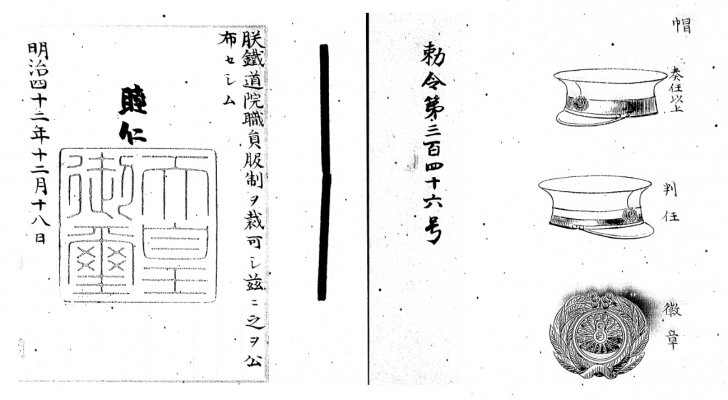 帽
奏任以上
判任
徽章
勅令第三百四十六号
朕鐵道院職員服制ヲ裁可シ茲ニ之ヲ公
布セシム
睦仁
天皇
御璽
明治四十二年十二月十八日